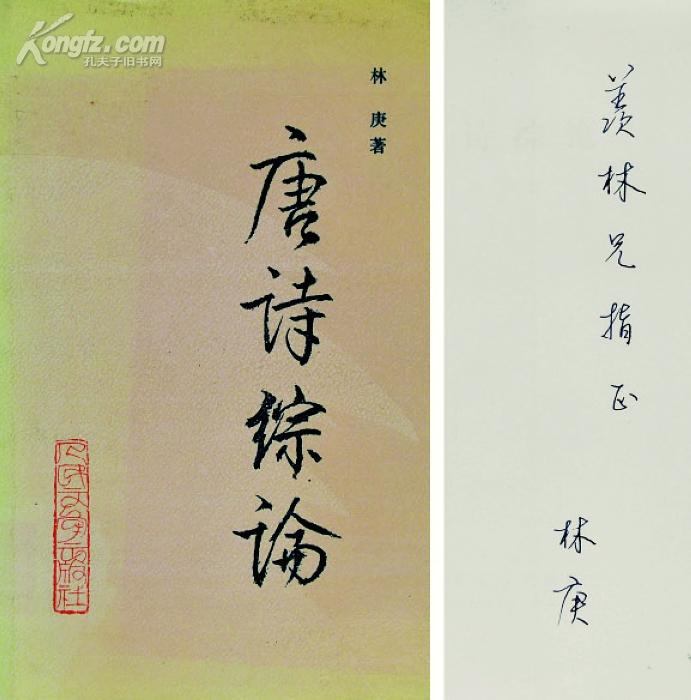 Kongfz.com
孔夫子旧书网
林庚著
唐诗综論
人民文学出版社
羡林兄指正
林庚